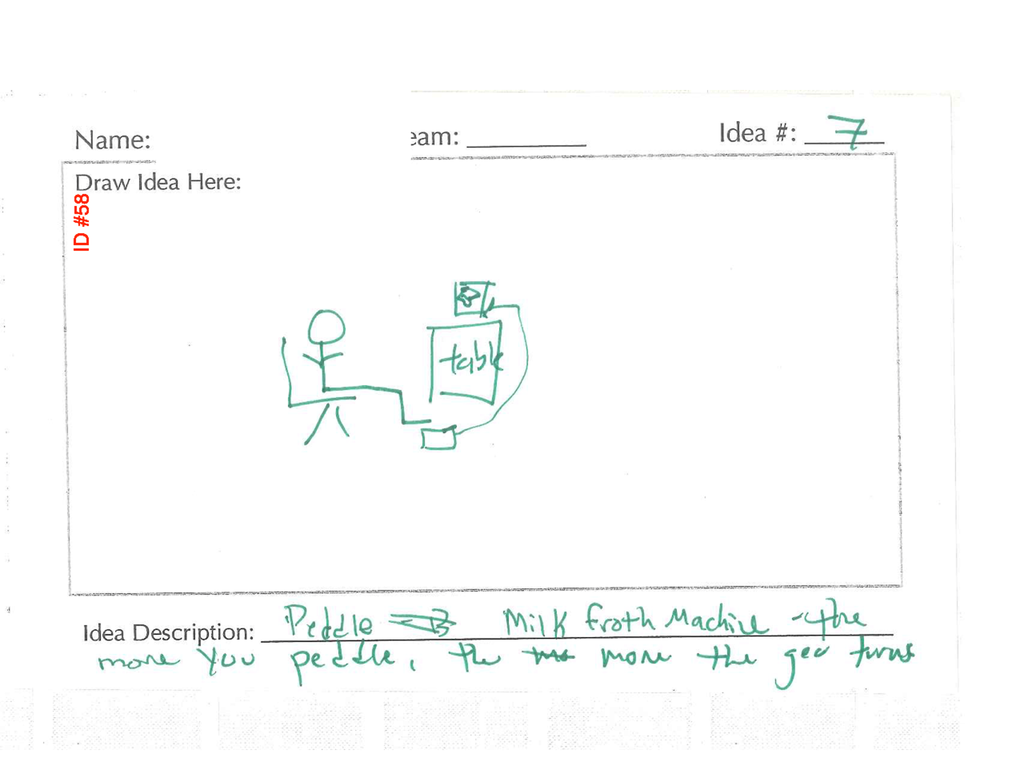 Name:
eam:
Idea #: 7
Draw Idea Here:
ID #58
table
Idea Description: Peddle Milk froth Machine - the
more you peddle, the more the geo turns